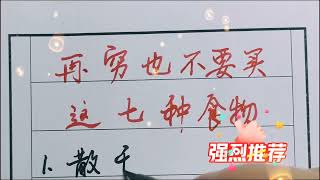 再穷也不要买
这七种食物
强烈推荐
1、散